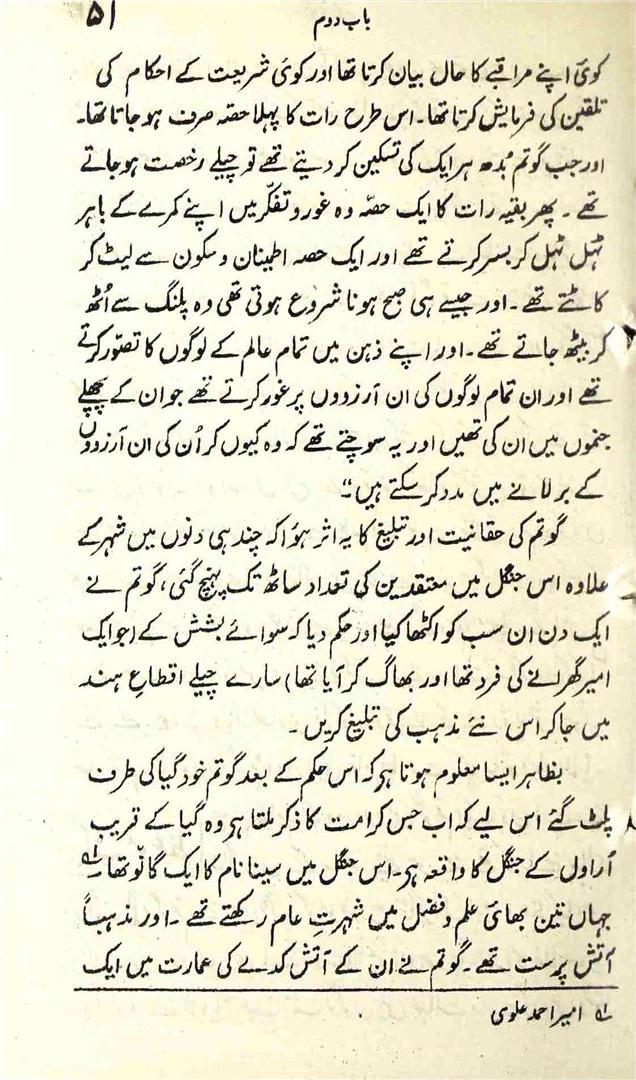 باب دوم
۵۱
کوئی اپنے مراقبے کا حال بیان کرتا تھا اور کوئی شریعت کے احکام کی
تلقین کی فرمایش کرتا تھا۔ اس طرح رات کا پہلا حصّہ صرف ہو جاتا تھا۔
اور جب گوتم بُدھ ہر ایک کی تسکین کر دیتے تھے تو چیلے رخصت ہو جاتے
تھے۔ پھر بقیہ رات کا ایک حصّہ وہ غور و تفکّر میں اپنے کمرے کے باہر
ٹہل ٹہل کر بسر کرتے تھے اور ایک حصہ اطینان و سکون سے لیٹ کر
کاٹتے تھے۔ اور جیسے ہی صبح ہونا شروع ہوتی تھی وہ پلنگ سے اُٹھ
کر بیٹھ جاتے تھے۔ اور اپنے ذہن میں تمام عالم کے لوگوں کا تصوّر کرتے
تھے اور ان تمام لوگوں کی ان آرزووں پر غور کرتے تھے جو ان کے پچھلے
جنموں میں ان کی تھیں اور یہ سوچتے تھے کہ وہ کیوں کر اُن کی ان آرزووں
کے بر لانے میں مدد کر سکتے ہیں"
گوتم کی حقانیت اور تبلیغ کا یہ اثر ہوُا کہ چند ہی دنوں میں شہر کے
علاوہ اس جنگل میں معتقدین کی تعداد ساٹھ تک پہنچ گئی، گوتم نے
ایک دن ان سب کو اکٹھا کیا اور حکم دیا کہ سوائے بشش کے (جو ایک
امیر گھرانے کی فرد تھا اور بھاگ کر آیا تھا) سارے چیلے اقطاعِ ہند
میں جا کر اس نئے مذہب کی تبلیغ کریں۔
بظاہر ایسا معلوم ہوتا ہی کہ اس حکم کے بعد گوتم خود گیا کی طرف
پلٹ گئے اس لیے کہ اب جس کرامت کا ذکر ملتا ہی وہ گیا کے قریب
اُراول کے جنگل کا واقعہ ہی۔ اس جنگل میں سینا نام کا ایک گانْو تھا ؎۱
جہاں تین بھائی علم و فضل میں شہرتِ عام رکھتے تھے۔ اور مذہباً
آتش پرست تھے۔ گوتم نے ان کے آتش کدے کی عمارت میں ایک
؎۱ امیر احمد علوی